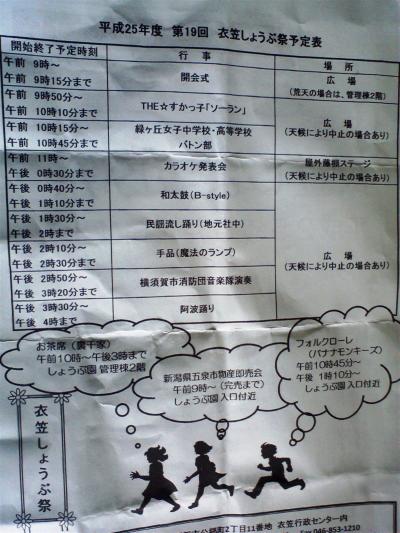 平成25年度 第19回 衣笠しょうぶ祭予定表
開始終了予定時刻 行事 場所
午前 9時~
午前 9時15分まで
開会式
広場
(荒天の場合は、管理棟2階)
午前 9時50分~
午前 10時10分まで
THE☆すかっ子「ソーラン」
午前 10時15分~
午前 10時45分まで
緑ヶ丘女子中学校・高等学校
バトン部
広場
(天候により中止の場合あり)
午前 11時~
午後 0時30分まで
カラオケ発表会
屋外藤棚ステージ
(天候により中止の場合あり)
午後 0時40分~
午後 1時10分まで
和太鼓(B-style)
午後 1時30分~
午後 2時まで
民謡流し踊り(地元社中)
午後 2時10分~
午後 2時30分まで
手品(魔法のランプ)
広場
(天候により中止の場合あり)
午後 2時50分~
午後 3時20分まで
横須賀市消防団音楽隊演奏
午後 3時30分~
午後 4時まで
阿波踊り
お茶席(裏千家)
午前10時~午後3時まで
しょうぶ園 管理棟2階
新潟県五泉市物産即売会
午前9時~(完売まで)
しょうぶ園 入口付近
フォルクローレ
(バナナモンキーズ)
午前10時45分~
午後 1時10分~
しょうぶ園 入口付近
衣笠しょうぶ祭
公郷町2丁目11番地 衣笠行政センター内
Fax 046-853-1210